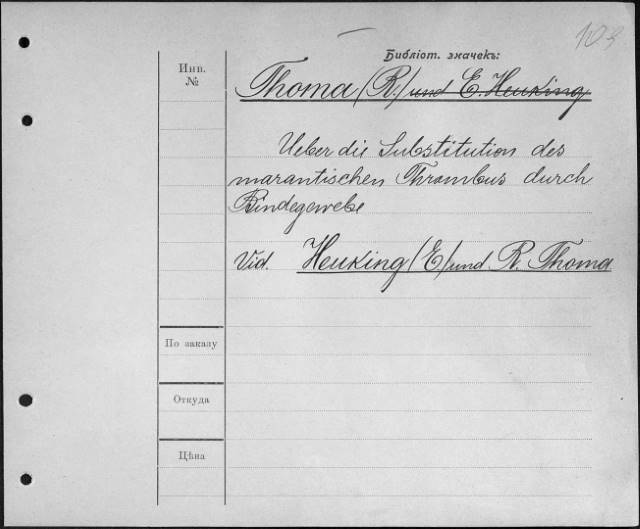 103
Библіот. значекъ:
Инв.
№
Thoma (R.) und E. Heuking
Ueber die Substitution des
marantischen Thrombus durch
Bindegewebe
Vid. Heuking (E.) und R. Thoma
По заказу
Откуда
Цѣна